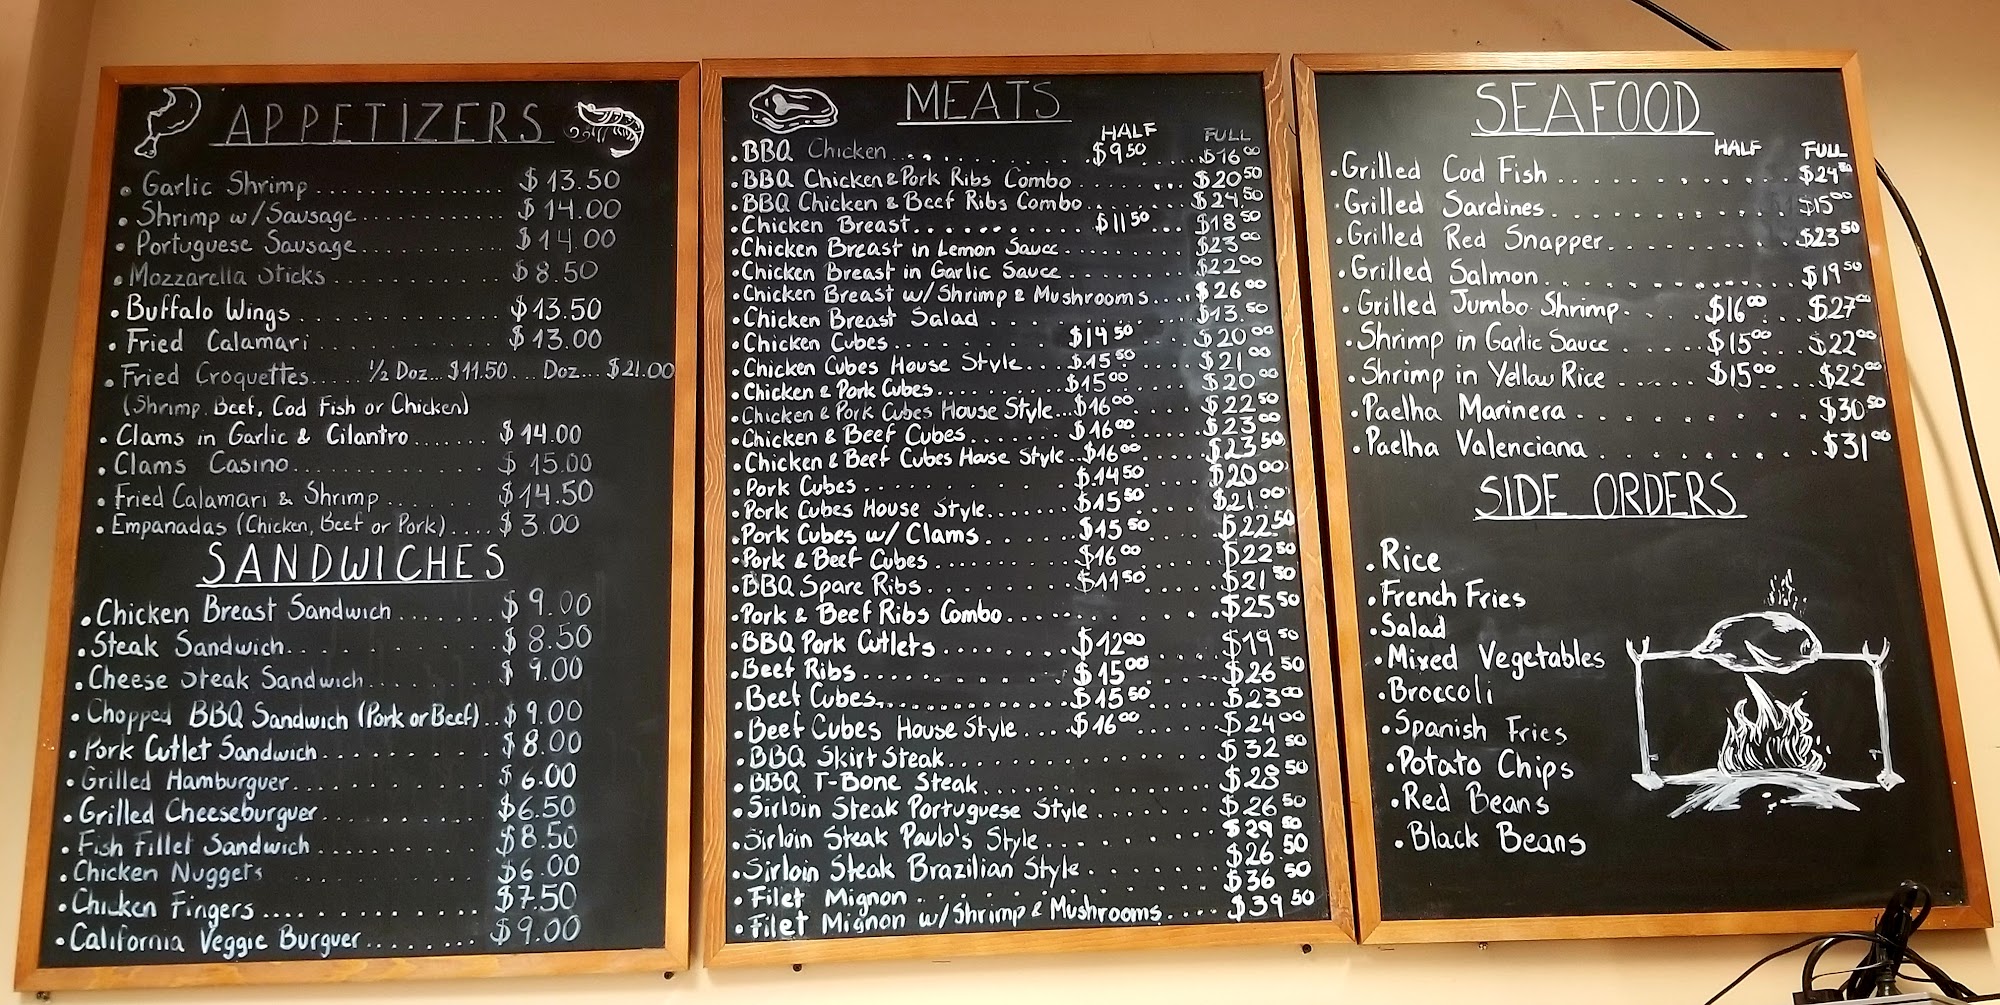 APPETIZERS
• Garlic Shrimp.................. $13.50
• Shrimp w/Sausage.............. $14.00
• Portuguese Sausage............. $14.00
• Mozzarella Sticks................ $8.50
• Buffalo Wings.................... $13.50
• Fried Calamari.................. $13.00
• Fried Croquettes..... 1/2 Doz... $11.50... Doz... $21.00
(Shrimp. Beef, Cod Fish or Chicken)
• Clams in Garlic & Cilantro....... $14.00
• Clams Casino................... $15.00
• Fried Calamari & Shrimp......... $14.50
• Empanadas (Chicken, Beef or Pork)..... $3.00
SANDWICHES
• Chicken Breast Sandwich....... $9.00
• Steak Sandwich.............. $8.50
• Cheese Steak Sandwich......... $9.00
• Chopped BBQ Sandwich (Pork or Beef)..$9.00
• Pork Cutlet Sandwich.......... $8.00
• Grilled Hamburguer............ $6.00
• Grilled Cheeseburguer.......... $6.50
• Fish Fillet Sandwich........... $8.50
• Chicken Nuggets.............. $6.00
• Chicken Fingers.............. $7.50
• California Veggie Burguer....... $9.00
MEATS
HALF FULL
• BBQ Chicken........ $9.50..... $16.00
• BBQ Chicken & Pork Ribs Combo........ $20.50
• BBQ Chicken & Beef Ribs Combo........ $24.50
• Chicken Breast.......... $11.50... $18.50
• Chicken Breast in Lemon Sauce......... $23.00
• Chicken Breast in Garlic Sauce......... $22.00
• Chicken Breast w/Shrimp & Mushrooms.... $26.00
• Chicken Breast Salad............ $13.50
• Chicken Cubes........... $14.50..... $20.00
• Chicken Cubes House Style.... $15.50..... $21.00
• Chicken & Pork Cubes........ $15.00..... $20.00
• Chicken & Pork Cubes House Style...$16.00..... $22.50
• Chicken & Beef Cubes........ $16.00..... $23.00
• Chicken & Beef Cubes House Style..$16.00..... $23.50
• Pork Cubes............. $14.50..... $20.00
• Pork Cubes House Style...... $15.50..... $21.00
• Pork Cubes w/ Clams....... $15.50..... $22.50
• Pork & Beef Cubes......... $16.00..... $22.50
• BBQ Spare Ribs........... $11.50..... $21.50
• Pork & Beef Ribs Combo............ $25.50
• BBQ Pork Cutlets......... $12.00..... $19.50
• Beef Ribs............. $15.00..... $26.50
• Beef Cubes............ $15.50..... $23.00
• Beef Cubes House Style.... $16.00..... $24.00
• BBQ Skirt Steak................ $32.50
• BBQ T-Bone Steak.............. $28.50
• Sirloin Steak Portuguese Style........ $26.50
• Sirloin Steak Paulo's Style.......... $29.50
• Sirloin Steak Brazilian Style......... $26.50
• Filet Mignon.................. $36.50
• Filet Mignon w/Shrimp & Mushrooms.... $39.50
SEAFOOD
HALF FULL
• Grilled Cod Fish............. $24.50
• Grilled Sardines.............. $15.00
• Grilled Red Snapper........... $23.50
• Grilled Salmon.............. $19.50
• Grilled Jumbo Shrimp..... $16.00 $27.00
• Shrimp in Garlic Sauce...... $15.00... $22.00
• Shrimp in Yellow Rice...... $15.00... $22.00
• Paelha Marinera............ $30.50
• Paelha Valenciana........... $31.00
SIDE ORDERS
• Rice
• French Fries
• Salad
• Mixed Vegetables
• Broccoli
• Spanish Fries
• Potato Chips
• Red Beans
• Black Beans